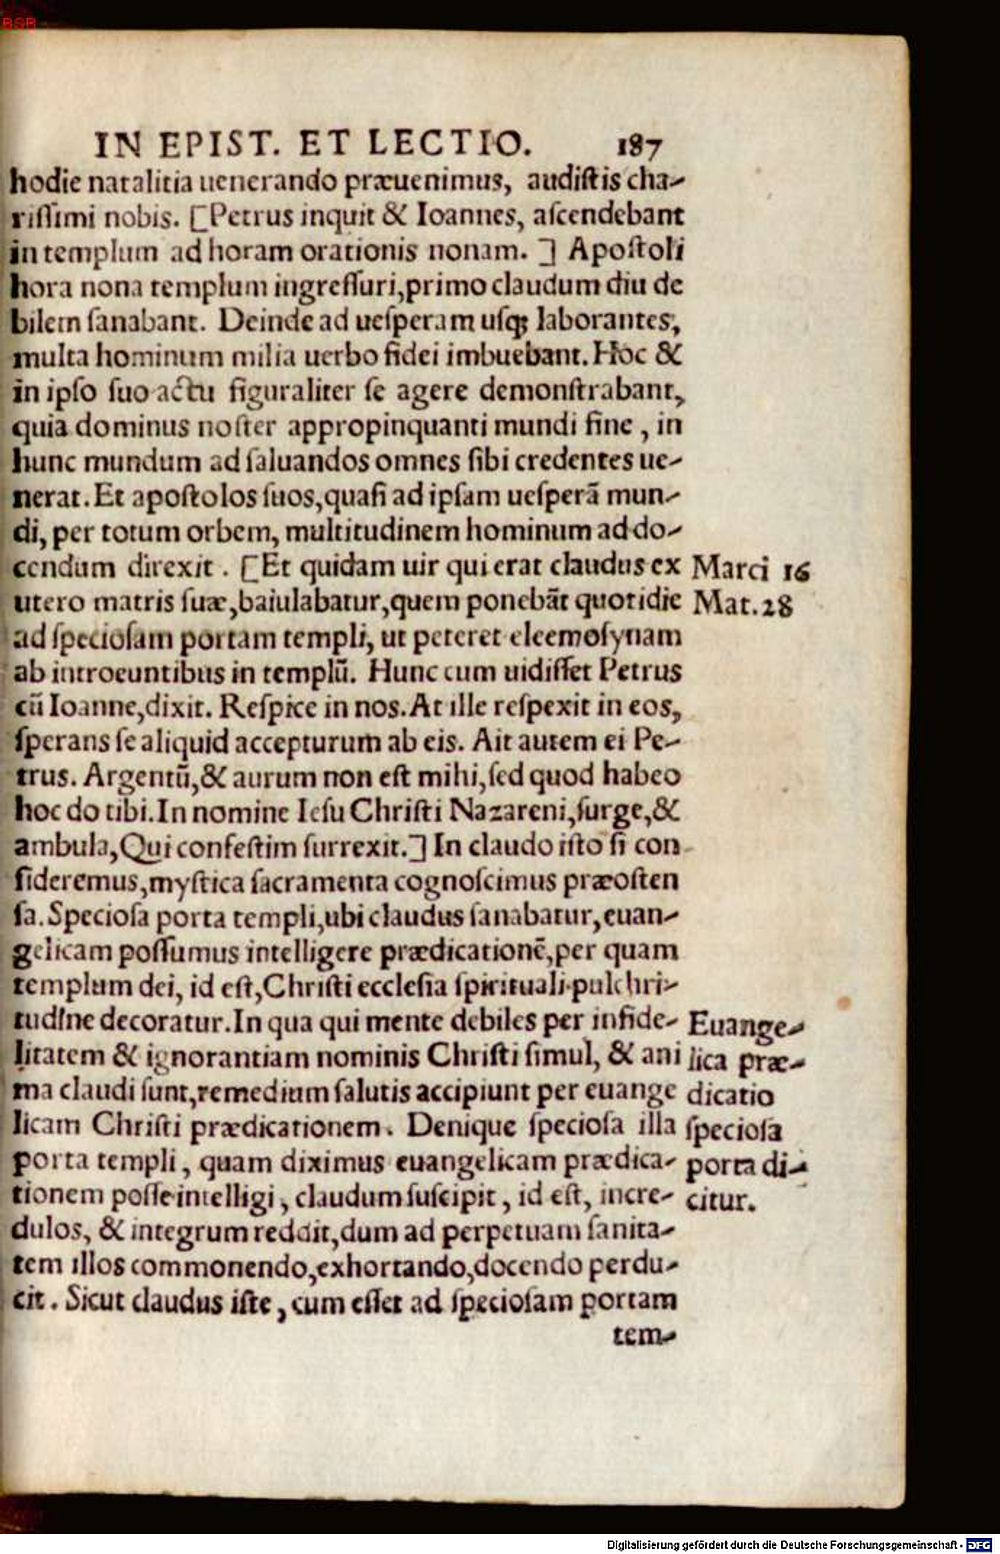 BSB
IN EPIST. ET LECTIO. 187
hodie natalitia uenerando præuenimus, audistis cha-
rissimi nobis. [Petrus inquit & Ioannes, ascendebant
in templum ad horam orationis nonam. ] Apostoli
hora nona templum ingressuri, primo claudum diu de
bilem sanabant. Deinde ad uesperam usq; laborantes,
multa hominum milia uerbo fidei imbuebant. Hoc &
in ipso suo actu figuraliter se agere demonstrabant,
quia dominus noster appropinquanti mundi fine, in
hunc mundum ad saluandos omnes sibi credentes ue-
nerat. Et apostolos suos, quasi ad ipsam uesperā mun-
di, per totum orbem, multitudinem hominum ad do-
cendum direxit. [Et quidam uir qui erat claudus ex
Marci 16
utero matris suæ, baiulabatur, quem ponebāt quotidie
Mat. 28
ad speciosam portam templi, ut peteret eleemosynam
ab introeuntibus in templū. Hunc cum uidisset Petrus
cū Ioanne, dixit. Respice in nos. At ille respexit in eos,
sperans se aliquid accepturum ab eis. Ait autem ei Pe-
trus. Argentū, & aurum non est mihi, sed quod habeo
hoc do tibi. In nomine Iesu Christi Nazareni, surge, &
ambula, Qui confestim surrexit.] In claudo isto si con-
sideremus, mystica sacramenta cognoscimus præosten
sa. Speciosa porta templi, ubi claudus sanabatur, euan-
gelicam possumus intelligere prædicationē, per quam
templum dei, id est, Christi ecclesia spirituali pulchri-
tudine decoratur. In qua qui mente debiles per infide-
Euange-
litatem & ignorantiam nominis Christi simul, & ani
lica præ-
ma claudi sunt, remedium salutis accipiunt per euange
dicatio
licam Christi prædicationem. Denique speciosa illa
speciosa
porta templi, quam diximus euangelicam prædica-
porta di-
tionem posse intelligi, claudum suscipit, id est, incre-
citur.
dulos, & integrum reddit, dum ad perpetuam sanita-
tem illos commonendo, exhortando, docendo perdu-
cit. Sicut claudus iste, cum esset ad speciosam portam
tem-
Digitalisierung gefördert durch die Deutsche Forschungsgemeinschaft - DFG